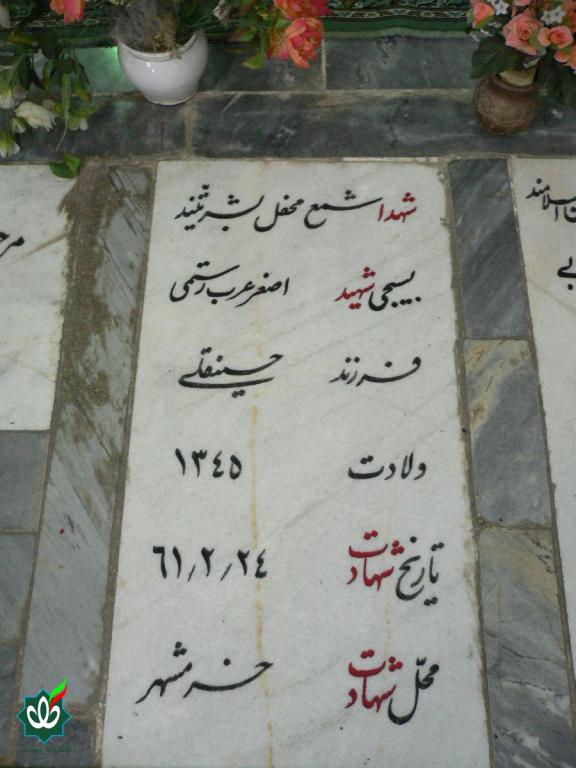 شهدا شمع محفل بشریّتند
بسیجی شهید اصغر عرب رستمی
فرزند حسینقلی
ولادت ۱۳۴۵
تاریخ شهادت ۶۱٫۲٫۲۴
محلّ شهادت خرمشهر